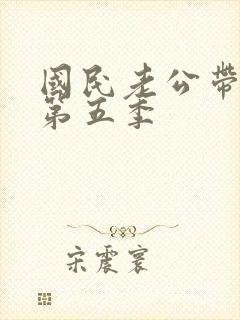 國民老公帶
第五季
宋震寰